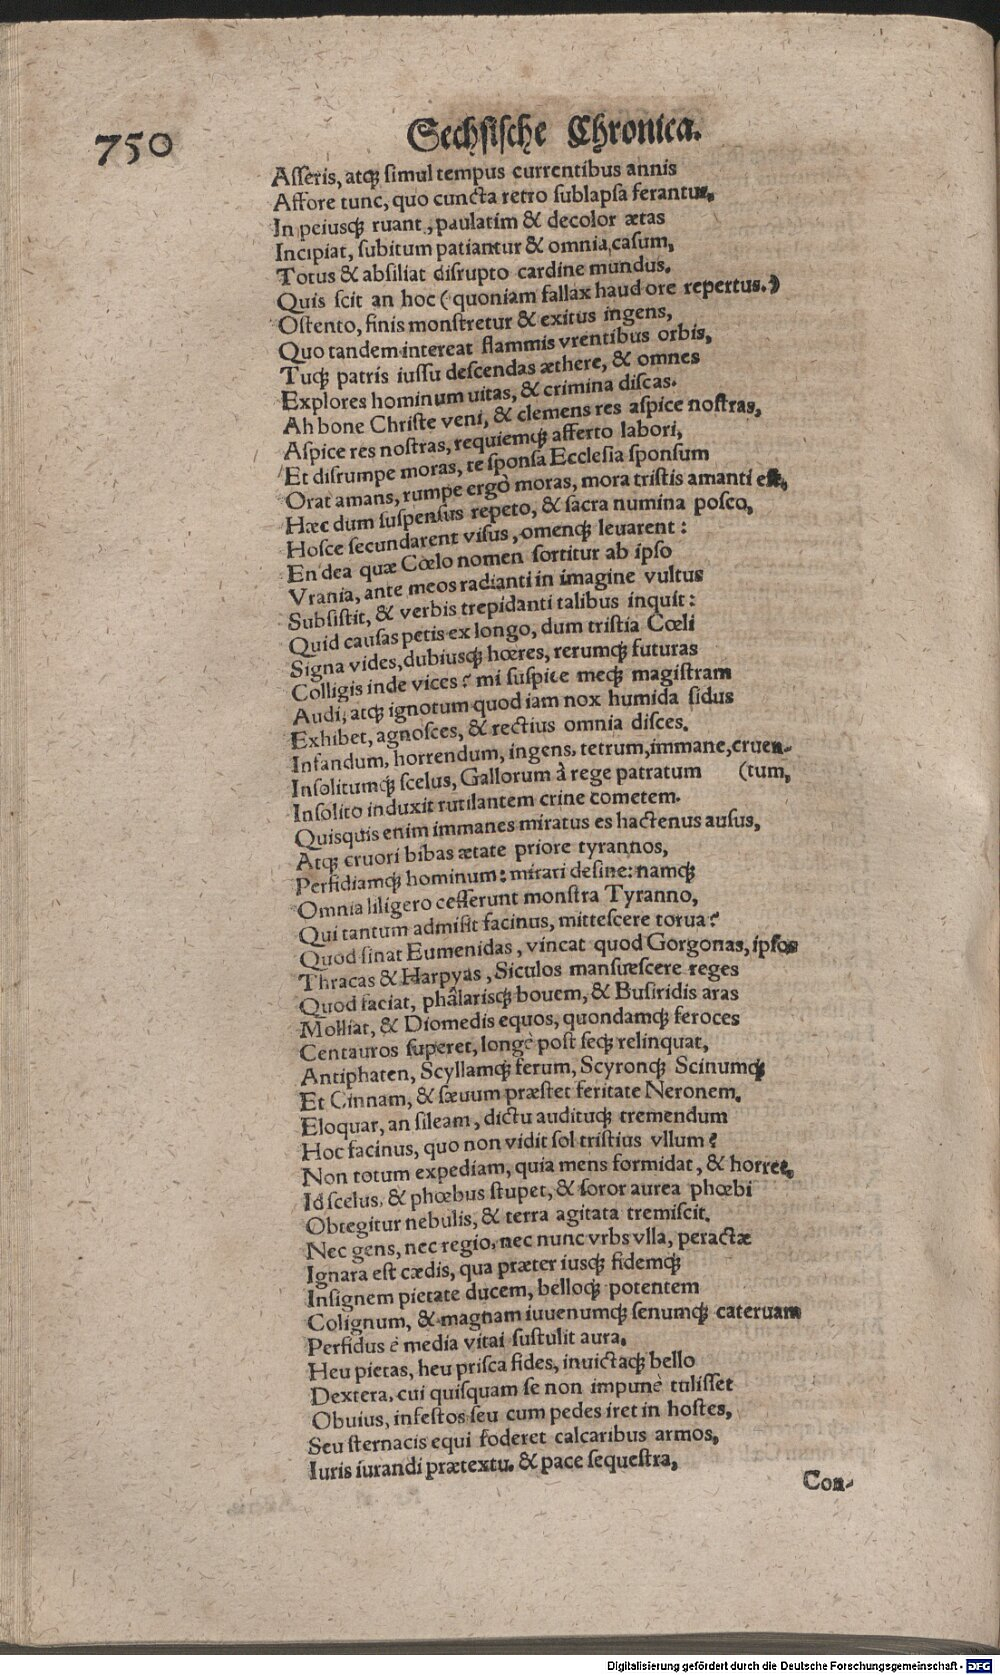 750
Sechsische Chronica.
Asseris, atq́; simul tempus currentibus annis
Affore tunc, quo cuncta retro sublapsa ferantur,
In peiusq́; ruant, paulatim & decolor ætas
Incipiat, subitum patiantur & omnia casum,
Totus & absiliat disrupto cardine mundus.
Quis scit an hoc (quoniam fallax haud ore repertus.)
Ostento, finis monstretur & exitus ingens,
Quo tandem intereat flammis vrentibus orbis,
Tuq́; patris iussu descendas æthere, & omnes
Explores hominum uitas, & crimina discas.
Ah bone Christe veni, & clemens res aspice nostras,
Aspice res nostras, requiemq́; afferto labori,
Et disrumpe moras, te sponsa Ecclesia sponsum
Orat amans, rumpe ergò moras, mora tristis amanti est,
Hæc dum suspensus repeto, & sacra numina posco,
Hosce secundarent visus, omenq́; leuarent:
En dea quæ Cœlo nomen sortitur ab ipso
Vrania, ante meos radianti in imagine vultus
Subsistit, & verbis trepidanti talibus inquit:
Quid causas petis ex longo, dum tristia Cœli
Signa vides, dubiusq́; hœres, rerumq́; futuras
Colligis inde vices? mi suspice meq́; magistram
Audi, atq́; ignotum quod iam nox humida sidus
Exhibet, agnosces, & rectius omnia disces.
Infandum, horrendum, ingens, tetrum, immane, cruen-
Insolitumq́; scelus, Gallorum à rege patratum (tum,
Insolito induxit rutilantem crine cometem.
Quisquis enim immanes miratus es hactenus ausus,
Atq́; cruori bibas ætate priore tyrannos,
Perfidiamq́; hominum: mirari desine: namq́;
Omnia liligero cesserunt monstra Tyranno,
Qui tantum admisit facinus, mittescere torua?
Quod sinat Eumenidas, vincat quod Gorgonas, ipsos
Thracas & Harpyas, Siculos mansuescere reges
Quod faciat, phâlarisq́; bouem, & Busiridis aras
Molliat, & Diomedis equos, quondamq́; feroces
Centauros superet, longè post seq́; relinquat,
Antiphaten, Scyllamq́; ferum, Scyronq́; Scinumq́;
Et Cinnam, & sæuum præstet feritate Neronem.
Eloquar, an sileam, dictu audituq́; tremendum
Hoc facinus, quo non vidit sol tristius vllum?
Non totum expediam, quia mens formidat, & horret,
Id scelus, & phœbus stupet, & soror aurea phœbi
Obtegitur nebulis, & terra agitata tremiscit.
Nec gens, nec regio, nec nunc vrbs vlla, peractæ
Ignara est cædis, qua præter iusq́; fidemq́;
Insignem pietate ducem, belloq́; potentem
Colignum, & magnam iuuenumq́; senumq́; cateruam
Perfidus è media vitai sustulit aura.
Heu pietas, heu prisca fides, inuictaq́; bello
Dextera, cui quisquam se non impunè tulisset
Obuius, infestos seu cum pedes iret in hostes,
Seu sternacis equi foderet calcaribus armos,
Iuris iurandi prætextu. & pace sequestra,
Con-
Digitalisierung gefördert durch die Deutsche Forschungsgemeinschaft - DFG